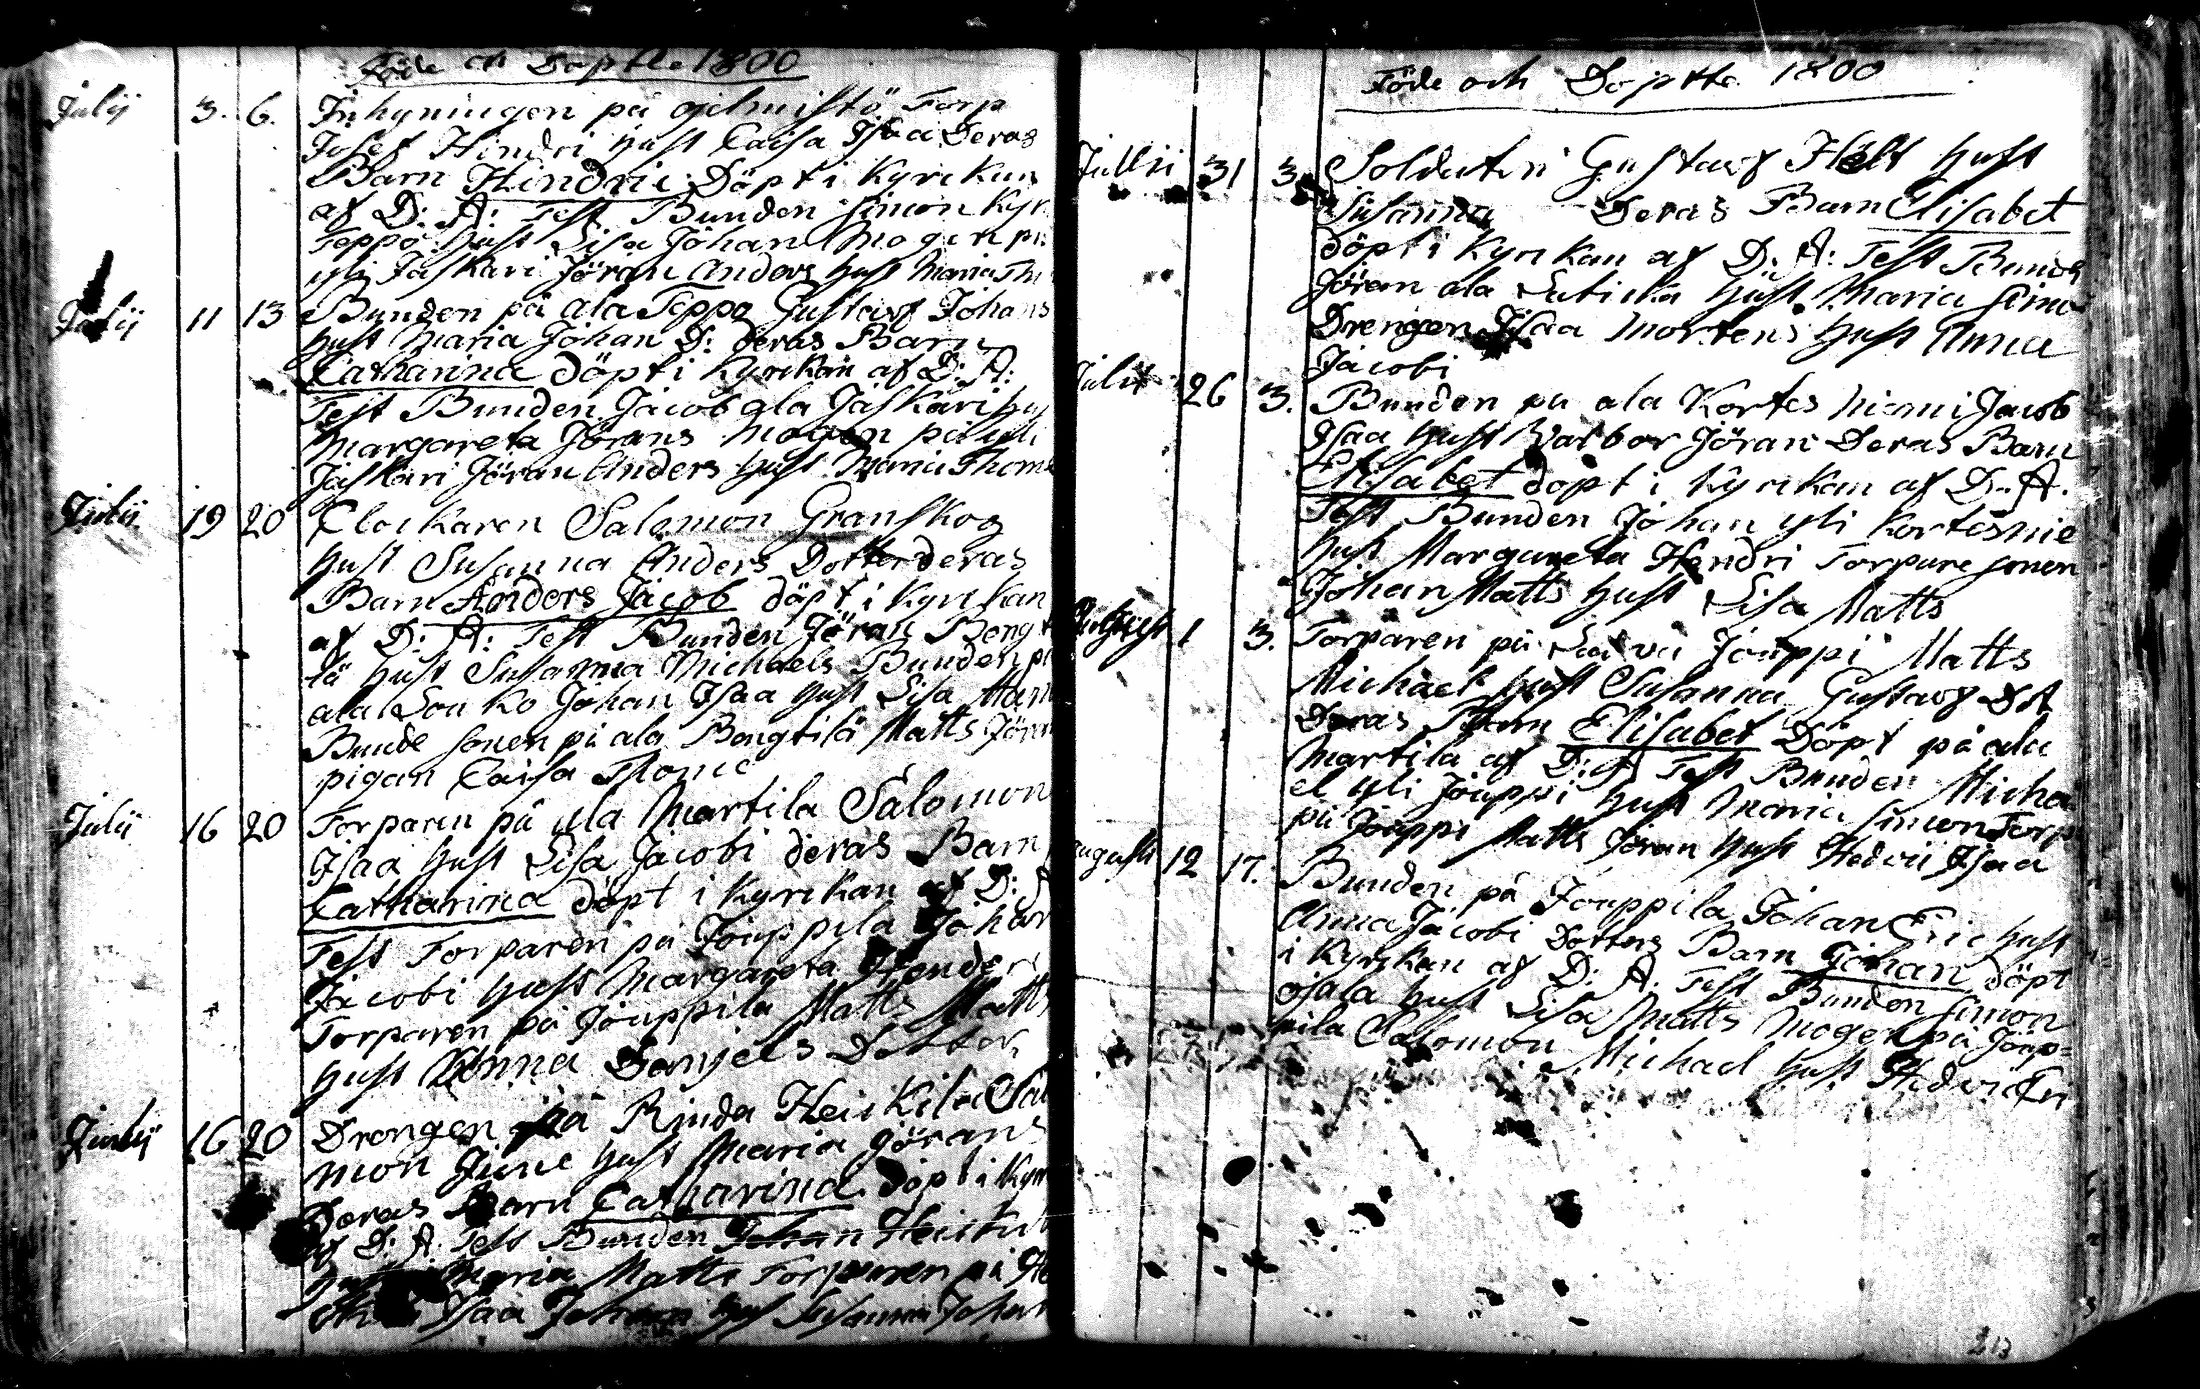 Föde och Döptte 1800
Julij 3. 6. Inhyningen på ojelmistö Torp
Josef Hindri hust Caisa Isaa Deras
Barn Hindric Döpt i Kyrckan
af D: A: Test Bunden Simon Kyr
Teppo hust Lisa Johan Mogen på
yli Jaskari Jöran Anders hust Maria Tho
Julij 11 13 Bunden på ala Teppo Gustaf Johans
hust Maria Johan D: deras Barn
Catharina döpt i Kyrckan af D: A:
Test Bunden Jacob ala Jaskari hus
Margareta Jörans Mogen på yli
Jaskari Jöran Anders hust Maria Thom
Julij 19 20 Clockaren Salomon Granskog
hust Susanna Anders Dotter deras
Barn Anders Jacob döpt i Kyrckan
af D: A: Test Bunden Jöran Bengt
lä hust Susanna Michaels Bunden på
ala Lou ko Johan Isaa hust Lisa
Bunde sonen på ala Bengtilä Matts Jöran
pigan Caisa Thome
Julij 16 20 Torparen på ala Martila Salomon
Isaa hust Lisa Jacobi deras Barn
Catharina döpt i Kyrckan af D: A
Test Torparen på Jouppila Johan
Jacobi hust Margareta Hendri
Torparen på Jouppila Matts Matts
hust Anna Danjels Dotter
16 20 Drengen på Rinda Heickila Salo
mon hust Maria Jörans
Deras Barn Catharina döpt i Kyr
af D: A. Test Bunden Johan Heickil
hust Maria Matts Torparen på He
Isaa Johan hust Susanna Johan
Föde och Döptte 1800
Jullii 31 3. Soldaten Gustaf Hält hust
Susanna Deras Barn Elisabet
döpt i Kyrckan af D. A: Test Bunde
Jöran ala hust Maria Simo
Drengen Isaa Mortens hust Anna
Jacobi
Julii 26 3. Bunden på ala Kortes niemi Jacob
Isaa hust Valbor Jöran Deras Barn
Elisabet döpt i Kyrckan af D. A.
Test Bunden Johan yli Kortesnie
hust Margareta Hendri Torpare sonen
Johan Matts hust Lisa Matts
August 1 3. Torparen på Jouppi Matts
Michael hust Susanna Gustaf Dot
Deras Barn Elisabet Döpt på ala
Martila af D: A Test Bunden Micha
el yli Jouppi hust Maria Simon Torp
på Jouppi Matts Jöran hust Hedvii Isaa
Augusti 12 17. Bunden på Jouppila Johan Eric hust
Anna Jacobi Dotters Barn Johan döpt
i Kyrckan af D: A. Test Bunden Simon
ojala hust Lisa Matts Mogen på Joup=
pila Salomon Michael hust Hedvi Eri
213